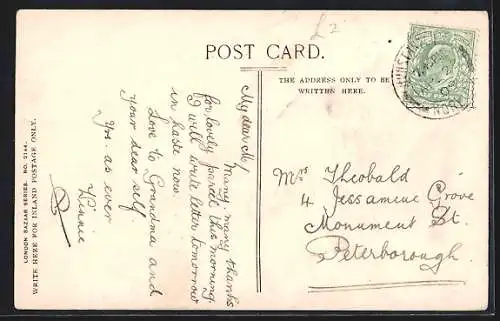 £2
POST CARD.
THE ADDRESS ONLY TO BE
WRITTEN HERE.
My dear M/
Many, many thanks
for lovely parcel this morning
I will write letter tomorrow
in haste now.
Love to Grandma and
your dear self
Yrs. as ever
Winnie
Mrs Theobald
4 Jessamine Grove
Monument St.
Peterborough.
LONDON BAZAAR SERIES. NO. 2144.
WRITE HERE FOR INLAND POSTAGE ONLY.